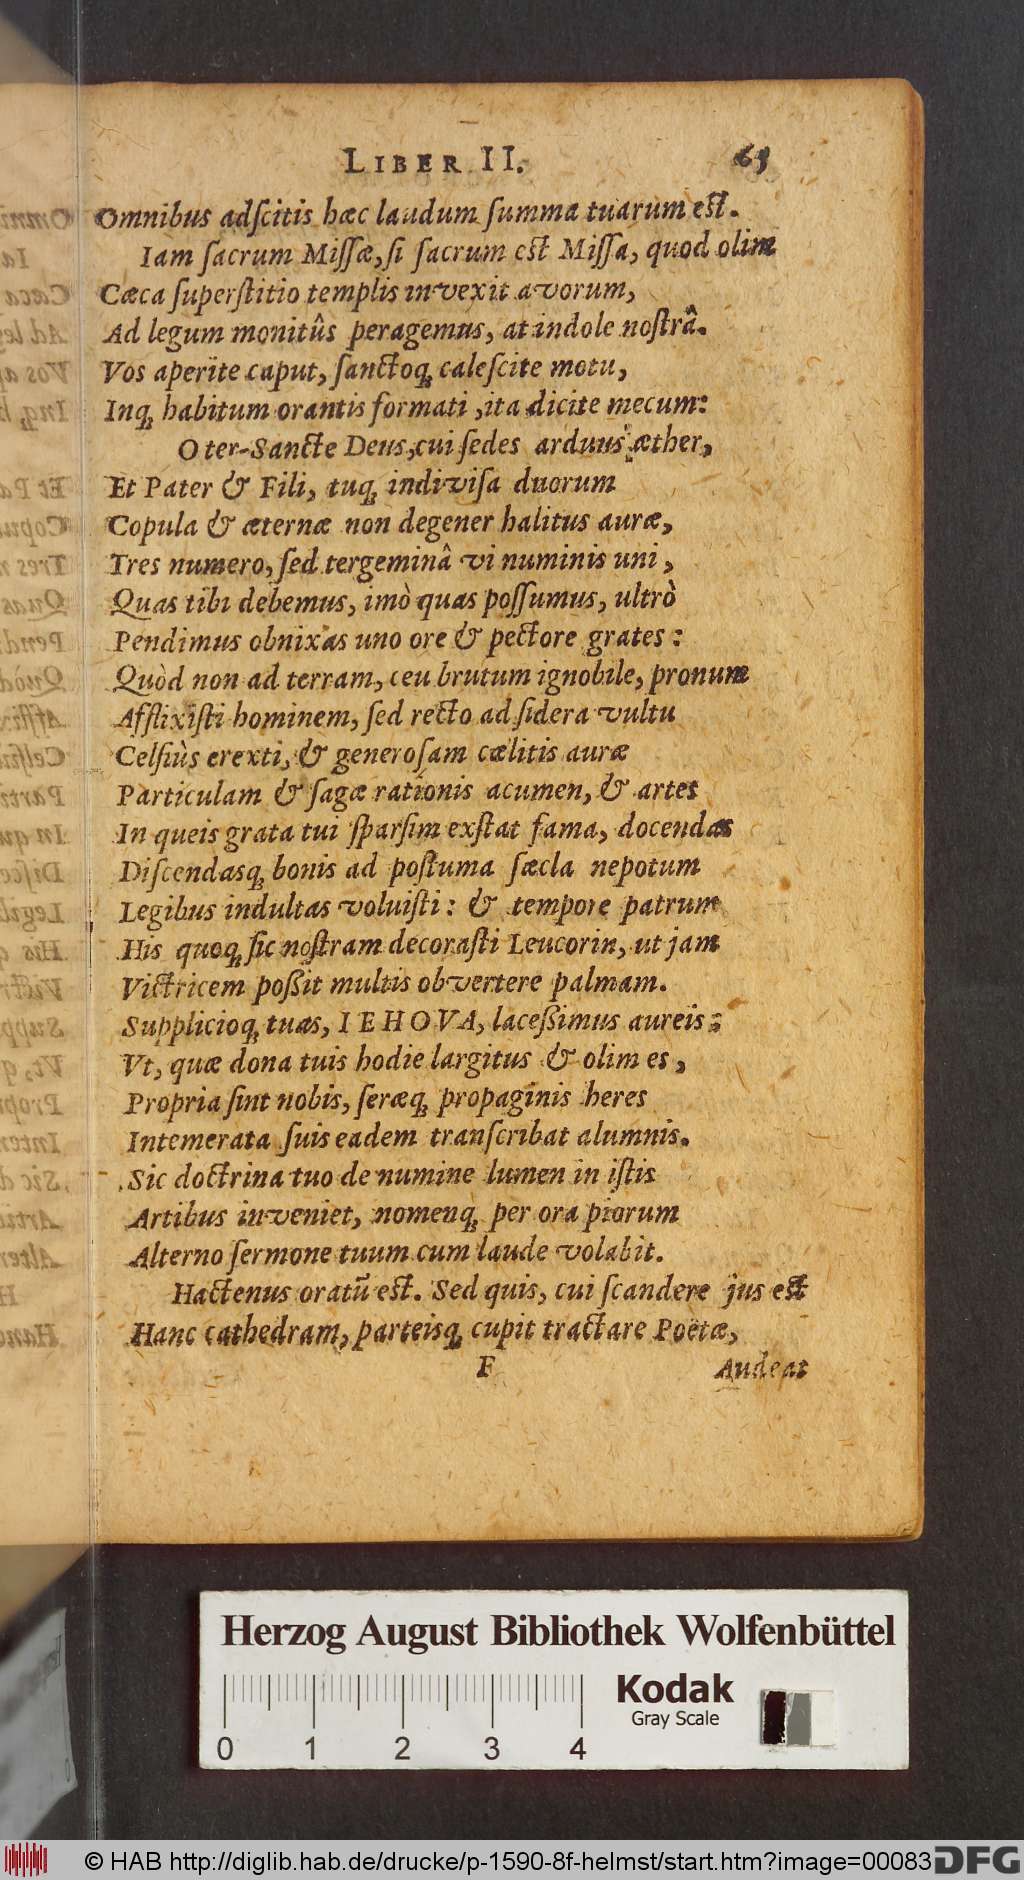 LIBER II. 65
Omnibus adſcitis hæc laudum ſumma tuarum eſt.
Iam ſacrum Miſſæ, ſi ſacrum eſt Miſſa, quod olim
Cæca ſuperſtitio templis invexit avorum,
Ad legum monitûs peragemus, at indole noſtrâ.
Vos aperite caput, ſanctoq; caleſcite motu,
Inq; habitum orantis formati, ita dicite mecum:
O ter-Sancte Deus, cui ſedes arduus æther,
Et Pater & Fili, tuq; indiviſa duorum
Copula & æternæ non degener halitus auræ,
Tres numero, ſed tergeminâ vi numinis uni,
Quas tibi debemus, imò quas poſſumus, ultrò
Pendimus obnixas uno ore & pectore grates:
Quòd non ad terram, ceu brutum ignobile, pronum
Afflixiſti hominem, ſed recto ad ſidera vultu
Celſiùs erexti, & generoſam cælitis auræ
Particulam & ſagæ rationis acumen, & artes
In queis grata tui ſparſim exſtat fama, docendas
Diſcendasq; bonis ad poſtuma ſæcla nepotum
Legibus indultas voluiſti: & tempore patrum
His quoq; ſic noſtram decoraſti Leucorin, ut jam
Victricem poßit multis obvertere palmam.
Supplicioq; tuas, IEHOVA, laceßimus aureis:
Vt, quæ dona tuis hodie largitus & olim es,
Propria ſint nobis, ſeræq; propaginis heres
Intemerata ſuis eadem tranſcribat alumnis.
Sic doctrina tuo de numine lumen in iſtis
Artibus inveniet, nomenq; per ora piorum
Alterno ſermone tuum cum laude volabit.
Hactenus oratũ eſt. Sed quis, cui ſcandere jus eſt
Hanc cathedram, parteisq; cupit tractare Poëtæ,
F Audeat
Herzog August Bibliothek Wolfenbüttel
Kodak
Gray Scale
0 1 2 3 4
© HAB http://diglib.hab.de/drucke/p-1590-8f-helmst/start.htm?image=00083
DFG